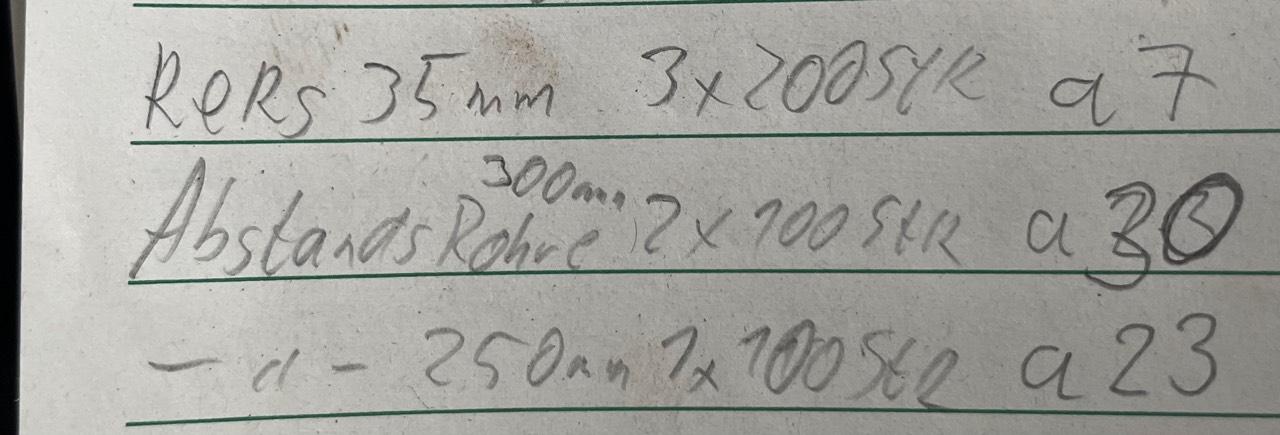 ReRs 35mm 3x200Stk a 7
300mm
AbstandsRohre 2x100Stk a 30
- " - 250mm 1x100Stk a 23